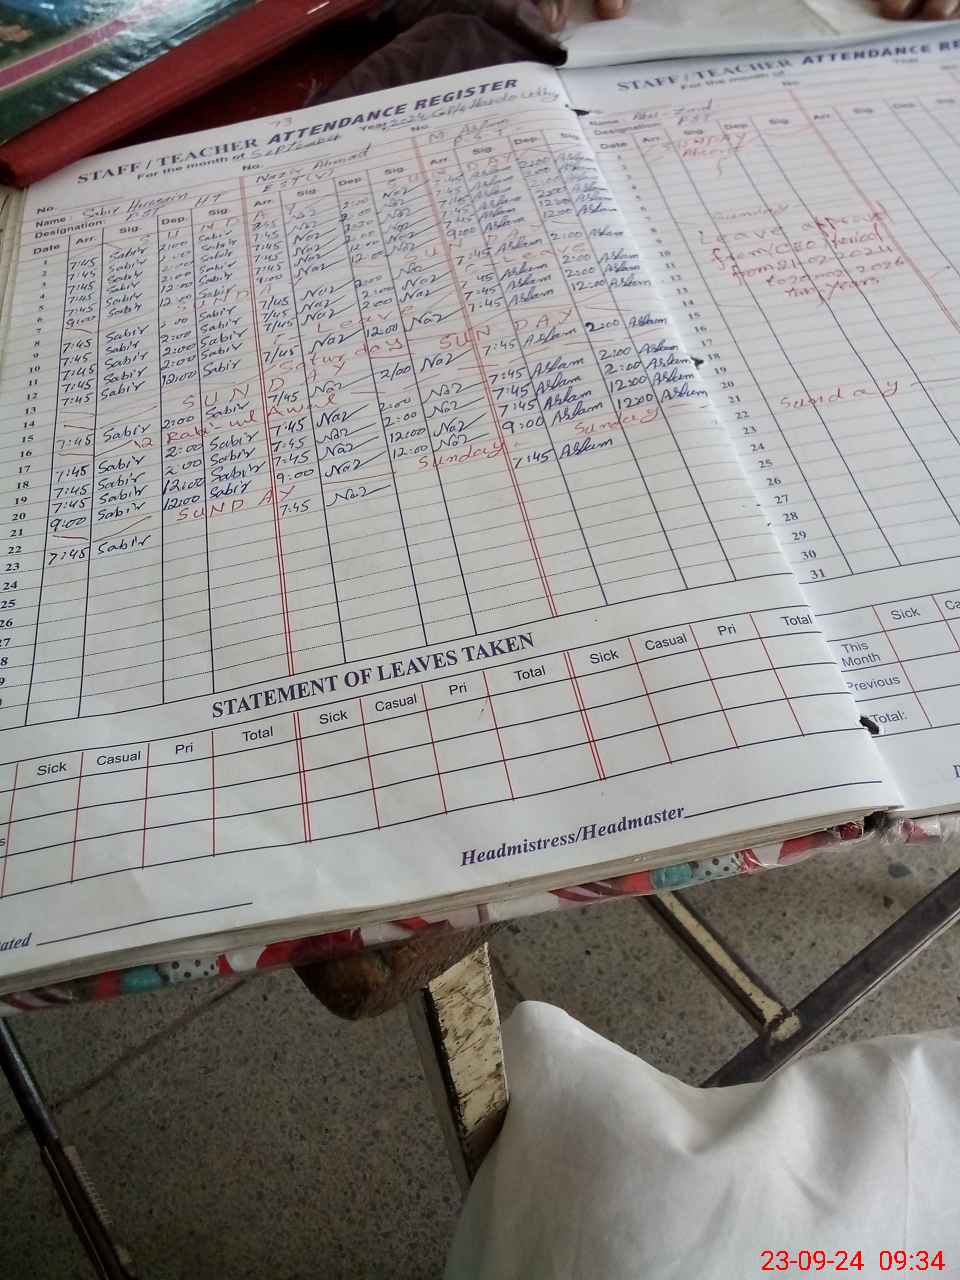 STAFF / TEACHER ATTENDANCE REGISTER
For the month of September Year 2024
No. No. No.
Name: Sabir Hussain HT
Ahmad
M. Aslam
Designation: PST
EST (V)
PST
Date Arr. Sig. Dep. Sig. Arr. Sig. Dep Sig. Arr. Sig. Dep Sig.
1 SUNDAY
2 7:45 Sabir 2:00 Sabir 7:45 Naz 2:00 Naz 7:45 Aslam 2:00 Aslam
3 7:45 Sabir 2:00 Sabir 7:45 Naz 2:00 Naz 7:45 Aslam 2:00 Aslam
4 7:45 Sabir 2:00 Sabir 7:45 Naz 2:00 Naz 7:45 Aslam 2:00 Aslam
5 7:45 Sabir 12:00 Sabir 7:45 Naz 7:45 Aslam 12:00 Aslam
6 9:00 Sabir 12:00 Sabir 9:00 Naz 12:00 Naz 9:00 Aslam 12:00 Aslam
7
8 SUNDAY
9 7:45 Sabir 2:00 Sabir 7/45 Naz 2:00 Naz 7:45 Aslam 2:00 Aslam
10 7:45 Sabir 2:00 Sabir 7/45 Naz 2:00 Naz 7:45 Aslam 2:00 Aslam
11 7:45 Sabir 2:00 Sabir 7/45 Naz 2:00 Naz 7:45 Aslam 2:00 Aslam
12 7:45 Sabir 12:00 Sabir Leave 7:45 Aslam 12:00 Aslam
13 7/45 Naz 12:00 Naz
14 Saturday
15 SUNDAY SUNDAY
16 7:45 Sabir 2:00 Sabir 7/45 Naz 2/00 Naz 7:45 Aslam 2:00 Aslam
17 12 Rabi ul Awal
18 7:45 Sabir 2:00 Sabir 7:45 Naz 2:00 Naz 7:45 Aslam 2:00 Aslam
19 7:45 Sabir 2:00 Sabir 7:45 Naz 2:00 Naz 7:45 Aslam 2:00 Aslam
20 7:45 Sabir 12:00 Sabir 7:45 Naz 12:00 Naz 7:45 Aslam 12:00 Aslam
21 9:00 Sabir 12:00 Sabir 9:00 Naz 12:00 Naz 9:00 Aslam 12:00 Aslam
22 SUNDAY Sunday Sunday
23 7:45 Sabir 7:45 Naz 7:45 Aslam
24
25
26
27
8
9
STATEMENT OF LEAVES TAKEN
Sick Casual Pri Total Sick Casual Pri Total Sick Casual Pri Total
Headmistress/Headmaster
ated
STAFF / TEACHER ATTENDANCE RE
For the month of
No.
Name
Designation: PST
Date Arr. Sig. Dep Sig. Arr. Sig. Dep Sig.
SUNDAY
Sunday
Leave approved
from CEO Period
from 21-02-2024
to 20-02-2026
two years
8
9
10
11
12
13
14
15
16
17
18
19
20
21
22 Sunday
23
24
25
26
27
28
29
30
31
Sick Ca
This Month
Previous
Total:
23-09-24 09:34